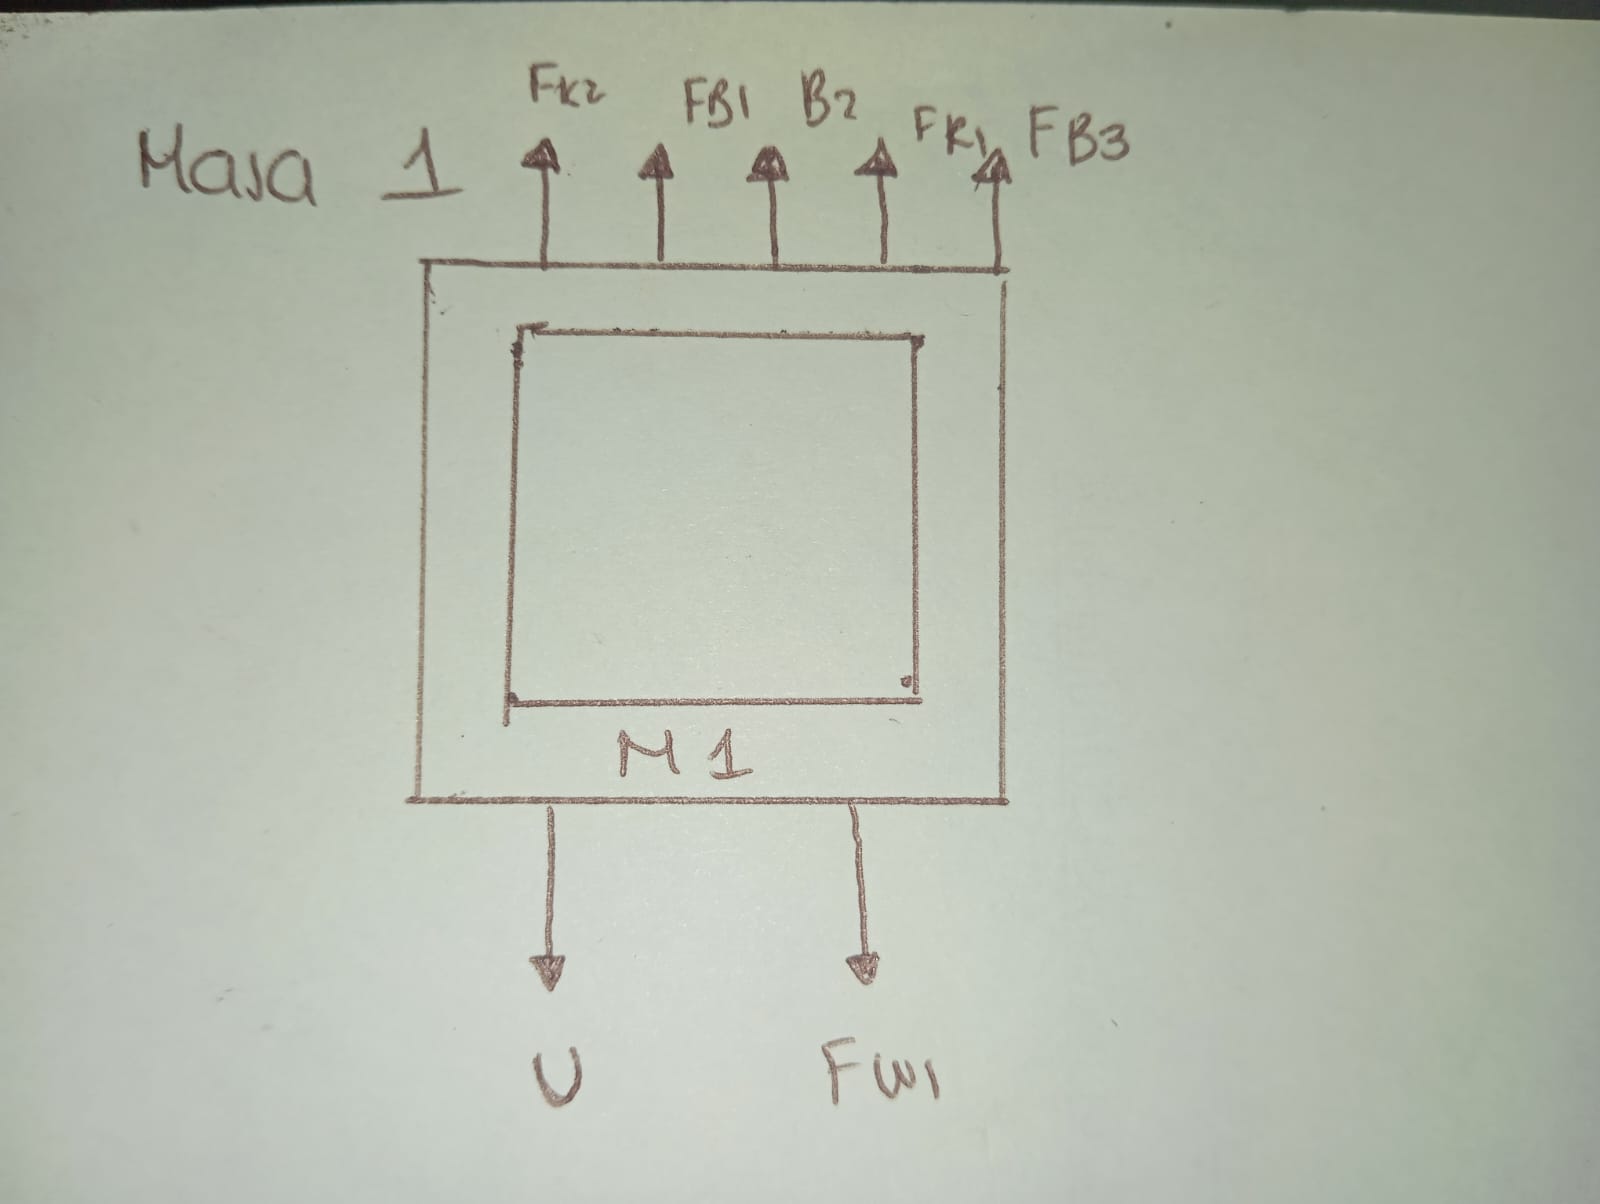 Masa 1
FK2 FB1 B2 FK1 FB3
M1
U FW1